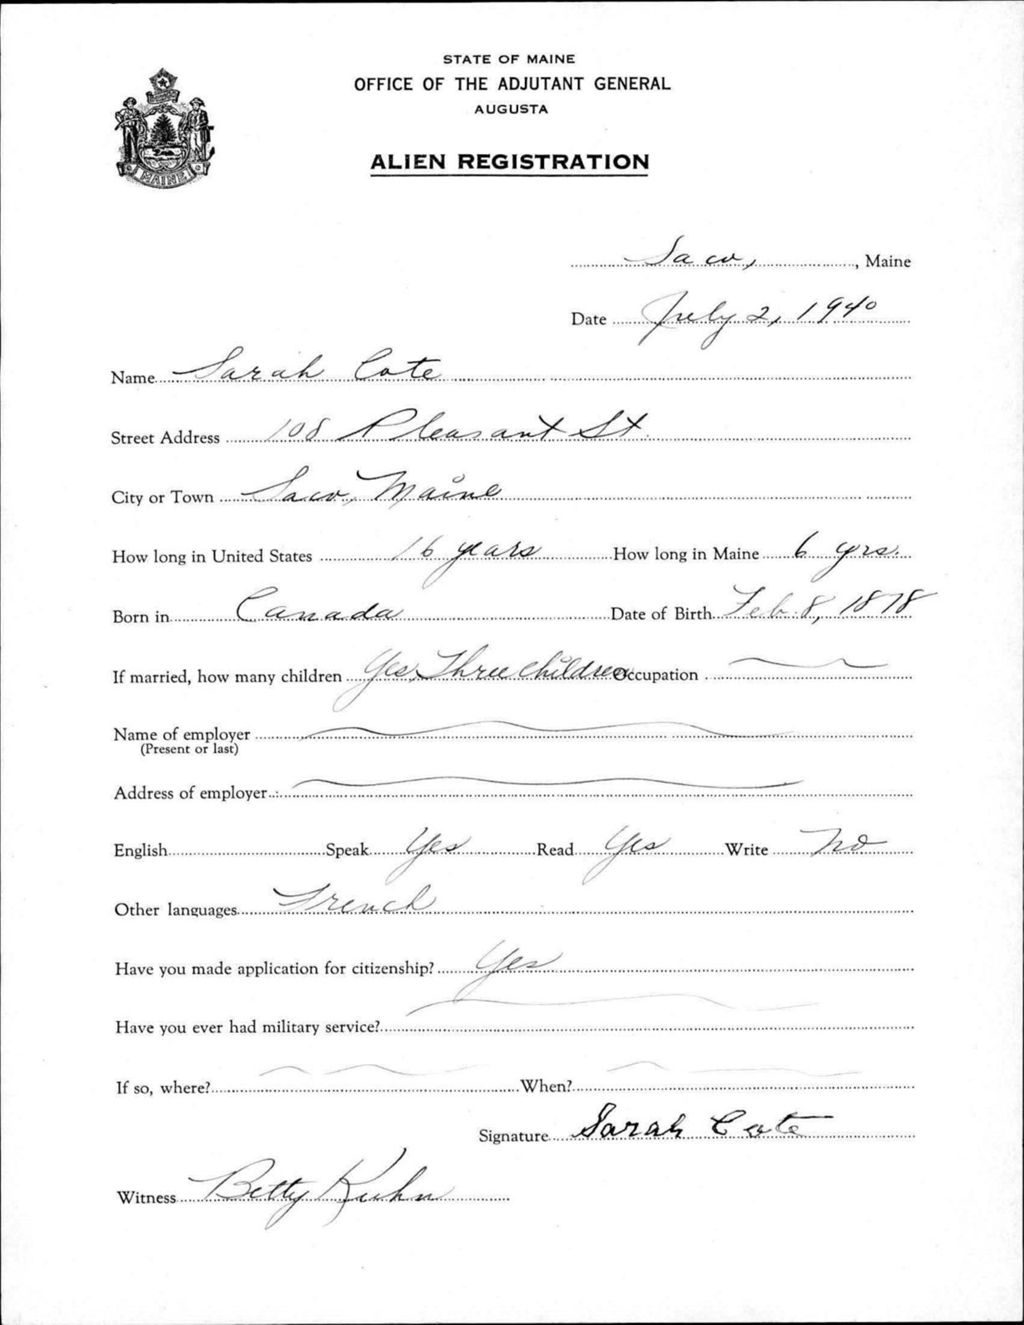 STATE OF MAINE
OFFICE OF THE ADJUTANT GENERAL
AUGUSTA
ALIEN REGISTRATION
MAINE
Saco, , Maine
Date July 2, 1940
Name Sarah Cote
Street Address 108 Pleasant St.
City or Town Saco, Maine
How long in United States 16 years How long in Maine 6 yrs.
Born in Canada Date of Birth Feb. 8, 1878
If married, how many children Yes, Three children Occupation
Name of employer
(Present or last)
Address of employer
English Speak Yes Read Yes Write No
Other languages French
Have you made application for citizenship? Yes
Have you ever had military service?
If so, where? When?
Signature Sarah Cote
Witness Betty Kuhn